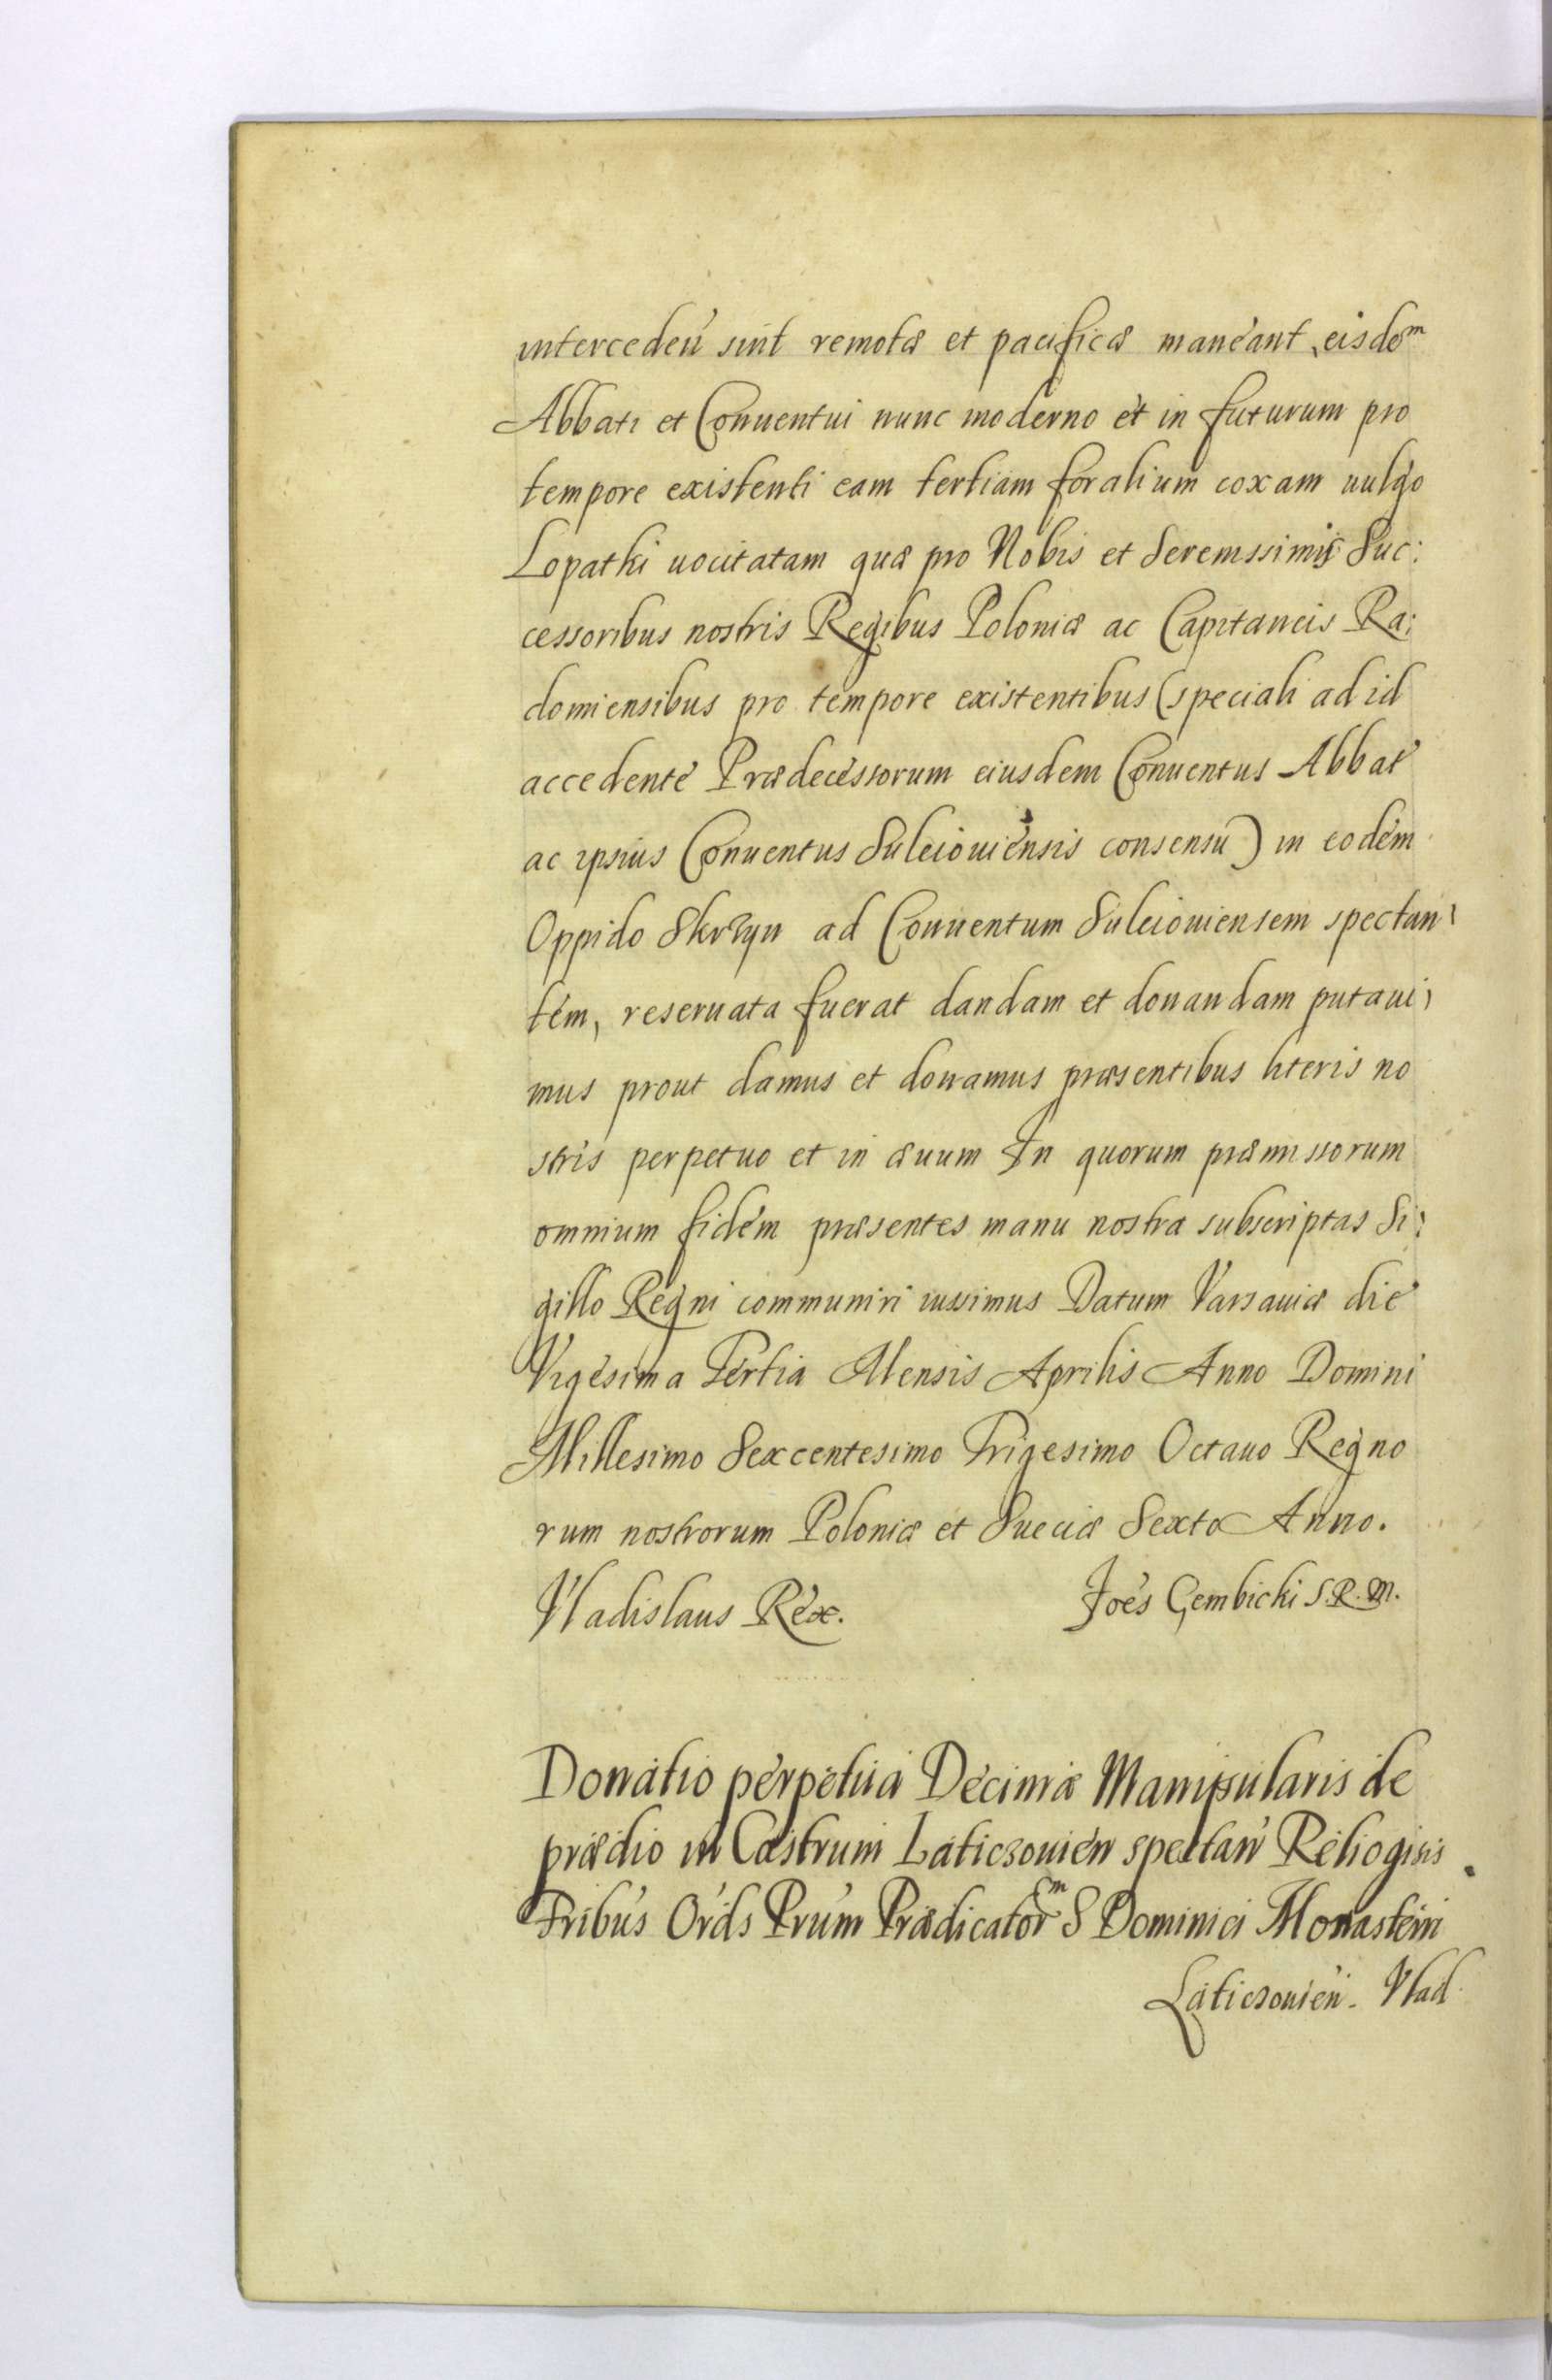 intercedeń sint remotæ et pacificæ maneant, eisdem
Abbati et Conuentui nunc moderno et in futurum pro
tempore existenti eam tertiam foralium coxam uulgo
Lopatki uocitatam quæ pro Nobis et Serenissimis Suc:
cessoribus nostris Regibus Poloniæ ac Capitaneis Ra:
domiensibus pro tempore existentibus (speciali ad id
accedente Prædecessorum eiusdem Conuentus Abbat
ac ipsius Conuentus Suleiouiensis consensu) in eodem
Oppido Skrzyn ad Conuentum Suleiouiensem spectan:
tem, reseruata fuerat dandam et donandam putaui:
mus prout damus et donamus præsentibus literis no
stris perpetuo et in æuum In quorum præmissorum
omnium fidem præsentes manu nostra subscriptas Si:
gillo Regni communiri iussimus Datum Varsauiæ die
Vigesima Tertia Mensis Aprilis Anno Domini
Millesimo Sexcentesimo Trigesimo Octauo Regno
rum nostrorum Poloniæ et Sueciæ Sexto Anno.
Vladislaus Rex. Joes Gembicki S.R.M.
Donatio perpetua Decimæ Manipularis de
prædio in Castrum Laticzouień spectań Reliogisis
Fribus Ords Prum Prædicatorm S Dominici Monasterii
Laticzouień. Vlad